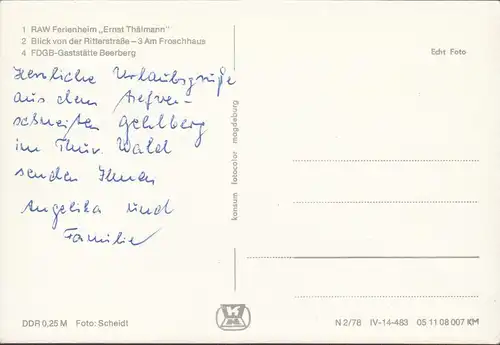 1 RAW Ferienheim „Ernst Thälmann"
2 Blick von der Ritterstraße – 3 Am Froschhaus
4 FDGB-Gaststätte Beerberg
Echt Foto
Herzliche Urlaubsgrüße
aus dem tiefver-
schneiten Gehlberg
im Thür. Wald
senden Ihnen
Angelika und
Familie
konsum fotocolor magdeburg
DDR 0,25 M Foto: Scheidt
N 2/78 IV-14-483 05 11 08 007 KH